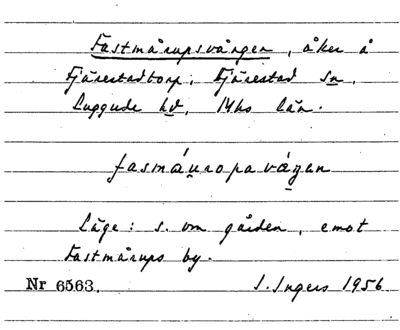 Fastmårupsvången, åker å
Fjärestadtorp, Fjärestad sn,
Luggude hd, Mhs län.
fasmáuropaváŋen
Läge: s. om gården, emot
Fastmårups by.
Nr 6563. I. Ingers 1956